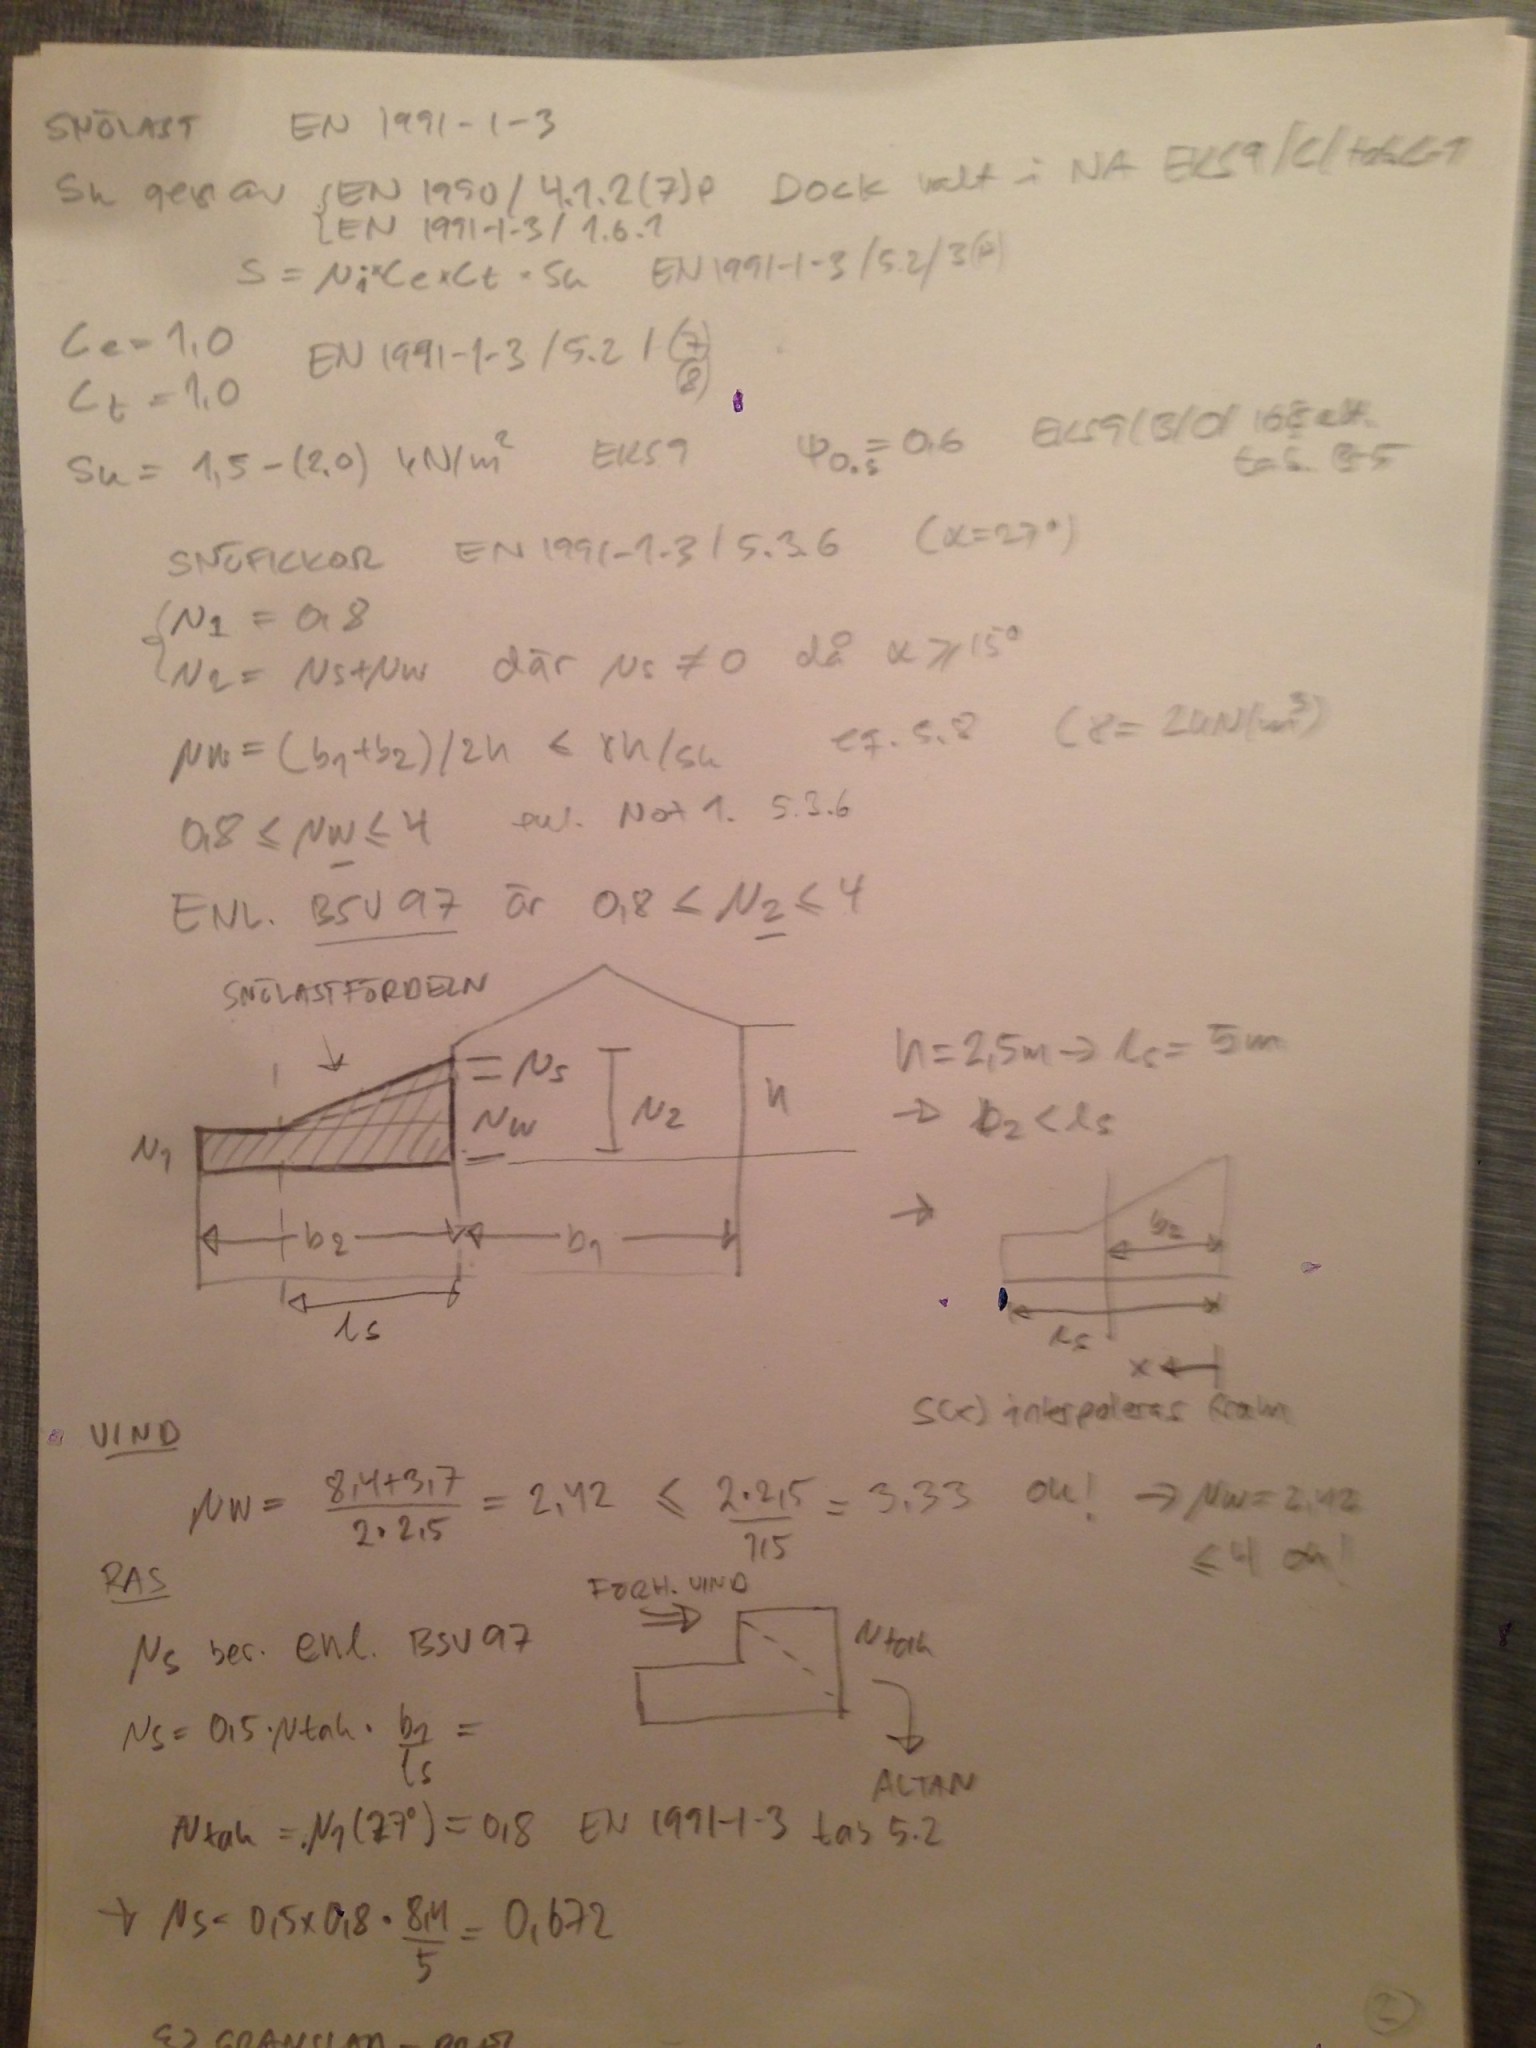 SNÖLAST EN 1991-1-3
Sk ges av { EN 1990/4.1.2(7)P Dock valt i NA EKS9/C/
{ EN 1991-1-3/1.6.1
S = μi*Ce*Ct·Sk EN 1991-1-3/5.2/3(P)
Ce = 1,0
EN 1991-1-3/5.2/(7)
(8)
Ct = 1,0
Sk = 1,5-(2,0) kN/m² EKS9 ψ0,s = 0,6 EKS9/B/0/
SNÖFICKOR EN 1991-1-3/5.3.6 (α=27°)
{ μ1 = 0,8
{ μ2 = μs+μw där μs ≠ 0 då α ≥ 15°
μw = (b1+b2)/2h ≤ γh/sk eq. 5.8 (γ = 2kN/m³)
0,8 ≤ μw ≤ 4 enl. Not 1. 5.3.6
ENL. BSV 97 är 0,8 ≤ μ2 ≤ 4
SNÖLASTFÖRDELN
μ1
μs
μw
μ2
h
b2
b1
ls
h = 2,5m → ls = 5m
→ b2 < ls
→
b2
ls
x ←
S(x) interpoleras fram
VIND
μw = (8,4+3,7)/(2·2,5) = 2,42 ≤ (2·2,5)/1,5 = 3,33 ok! → μw = 2,42
≤ 4 ok!
RAS
FÖRH. VIND
μs ber. enl. BSV 97
μtak
μs = 0,5·μtak·b1/ls =
ALTAN
μtak = μ1(27°) = 0,8 EN 1991-1-3 tab 5.2
→ μs = 0,5×0,8·8,4/5 = 0,672
2